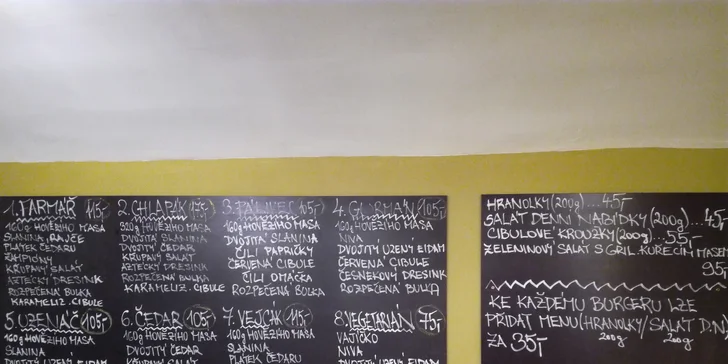 1. FARMÁŘ 115,-
160g HOVĚZÍHO MASA
SLANINA, RAJČE
PLÁTEK ČEDARU
ŽAMPIONY
KŘUPAVÝ SALÁT
AZTÉCKÝ DRESINK
ROZPEČENÁ BULKA
KARAMELIZ. CIBULE
2. CHLAPÁK
320g HOVĚZÍHO MASA
DVOJITÁ SLANINA
DVOJITÝ ČEDAR
KŘUPAVÝ SALÁT
AZTÉCKÝ DRESINK
ROZPEČENÁ BULKA
KARAMELIZ. CIBULE
3. PALIVEC 105,-
160g HOVĚZÍHO MASA
DVOJITÁ SLANINA
ČILI PAPRIČKY
ČERVENÁ CIBULE
ČILI OMÁČKA
ROZPEČENÁ BULKA
4. GURMÁN 105,-
160g HOVĚZÍHO MASA
NIVA
DVOJITÝ UZENÝ EIDAM
ČERVENÁ CIBULE
ČESNEKOVÝ DRESINK
ROZPEČENÁ BULKA
5. UZENÁČ 105,-
160g HOVĚZÍHO MASA
SLANINA
DVOJITÝ UZENÝ EIDAM
6. ČEDAR 105,-
160g HOVĚZÍHO MASA
DVOJITÝ ČEDAR
7. VEJCÁK 115,-
160g HOVĚZÍHO MASA
SLANINA
PLÁTEK ČEDARU
8. VEGETARIÁN 75,-
VAJÍČKO
NIVA
HRANOLKY (200g)....45,-
SALÁT DENNÍ NABÍDKY (200g)....45,-
CIBULOVÉ KROUŽKY (200g)...55,-
ZELENINOVÝ SALÁT S GRIL. KUŘECÍM MASEM
95
KE KAŽDÉMU BURGERU LZE
PŘIDAT MENU (HRANOLKY / SALÁT D.N.
200g 200g
ZA 35,-